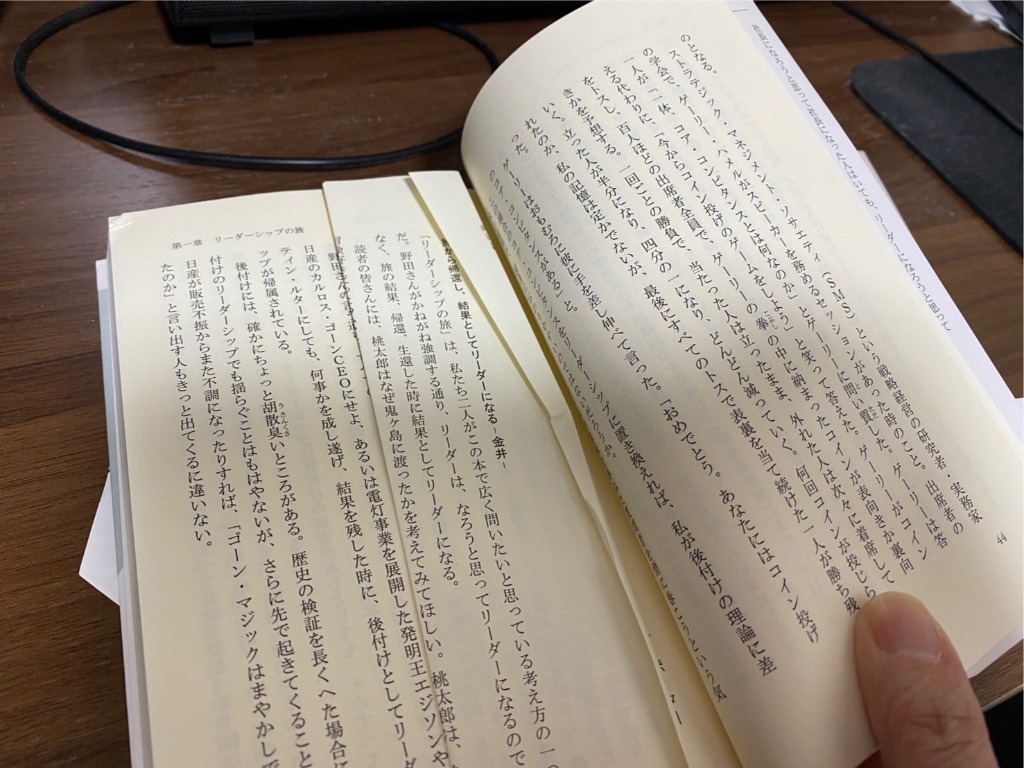 社長になろうと思って社長になった人はいても、リーダーになろうと思って
44
のとなる。
ストラテジック・マネジメント・ソサエティ（SMS）という戦略経営の研究者・実務家
の学会で、ゲーリー・ハメルがスピーカーを務めるセッションがあった時のこと。出席者の
一人が「一体、コア・コンピタンスとは何なのか」とゲーリーに問い質した。ゲーリーは答
える代わりに、「今からコイン投げのゲームをしよう」と笑って答えた。ゲーリーがコイン
をトスし、百人ほどの出席者全員で、ゲーリーの拳の中に納まったコインが表向きか裏向
きかを予想する。一回ごとの勝負で、当たった人は立ったまま、外れた人は次々に着席して
いく。立った人が半分になり、四分の一になり、どんどん減っていく。何回コインが投じら
れたのか、私の記憶は定かでないが、最後にすべてのトスで表裏を当て続けた一人が勝ち残
った。
ゲーリーはおもむろに彼に手を差し伸べて言った。「おめでとう。あなたにはコイン投げ
のコア・コンピタンスがある」と。
をリーダーシップに置き換えれば、私が後付けの理論に差
旅から帰還し、結果としてリーダーになる－金井－
「リーダーシップの旅」は、私たち二人がこの本で広く問いたいと思っている考え方の一つ
だ。野田さんがかねがね強調する通り、リーダーは、なろうと思ってリーダーになるので
なく、旅の結果、帰還、生還した時に結果としてリーダーになる。
読者の皆さんには、桃太郎はなぜ鬼ヶ島に渡ったかを考えてみてほしい。桃太郎は、
野田さんの言う通り
日産のカルロス・ゴーンCEOにせよ、あるいは電灯事業を展開した発明王エジソンや
ティン・ルターにしても、何事かを成し遂げ、結果を残した時に、後付けとしてリーダ
ップが帰属されている。
後付けには、確かにちょっと胡散臭いところがある。歴史の検証を長くへた場合に
付けのリーダーシップでも揺らぐことはもはやないが、さらに先で起きてくること
日産が販売不振からまた不調になったりすれば、「ゴーン・マジックはまやかしで
たのか」と言い出す人もきっと出てくるに違いない。
第一章　リーダーシップの旅